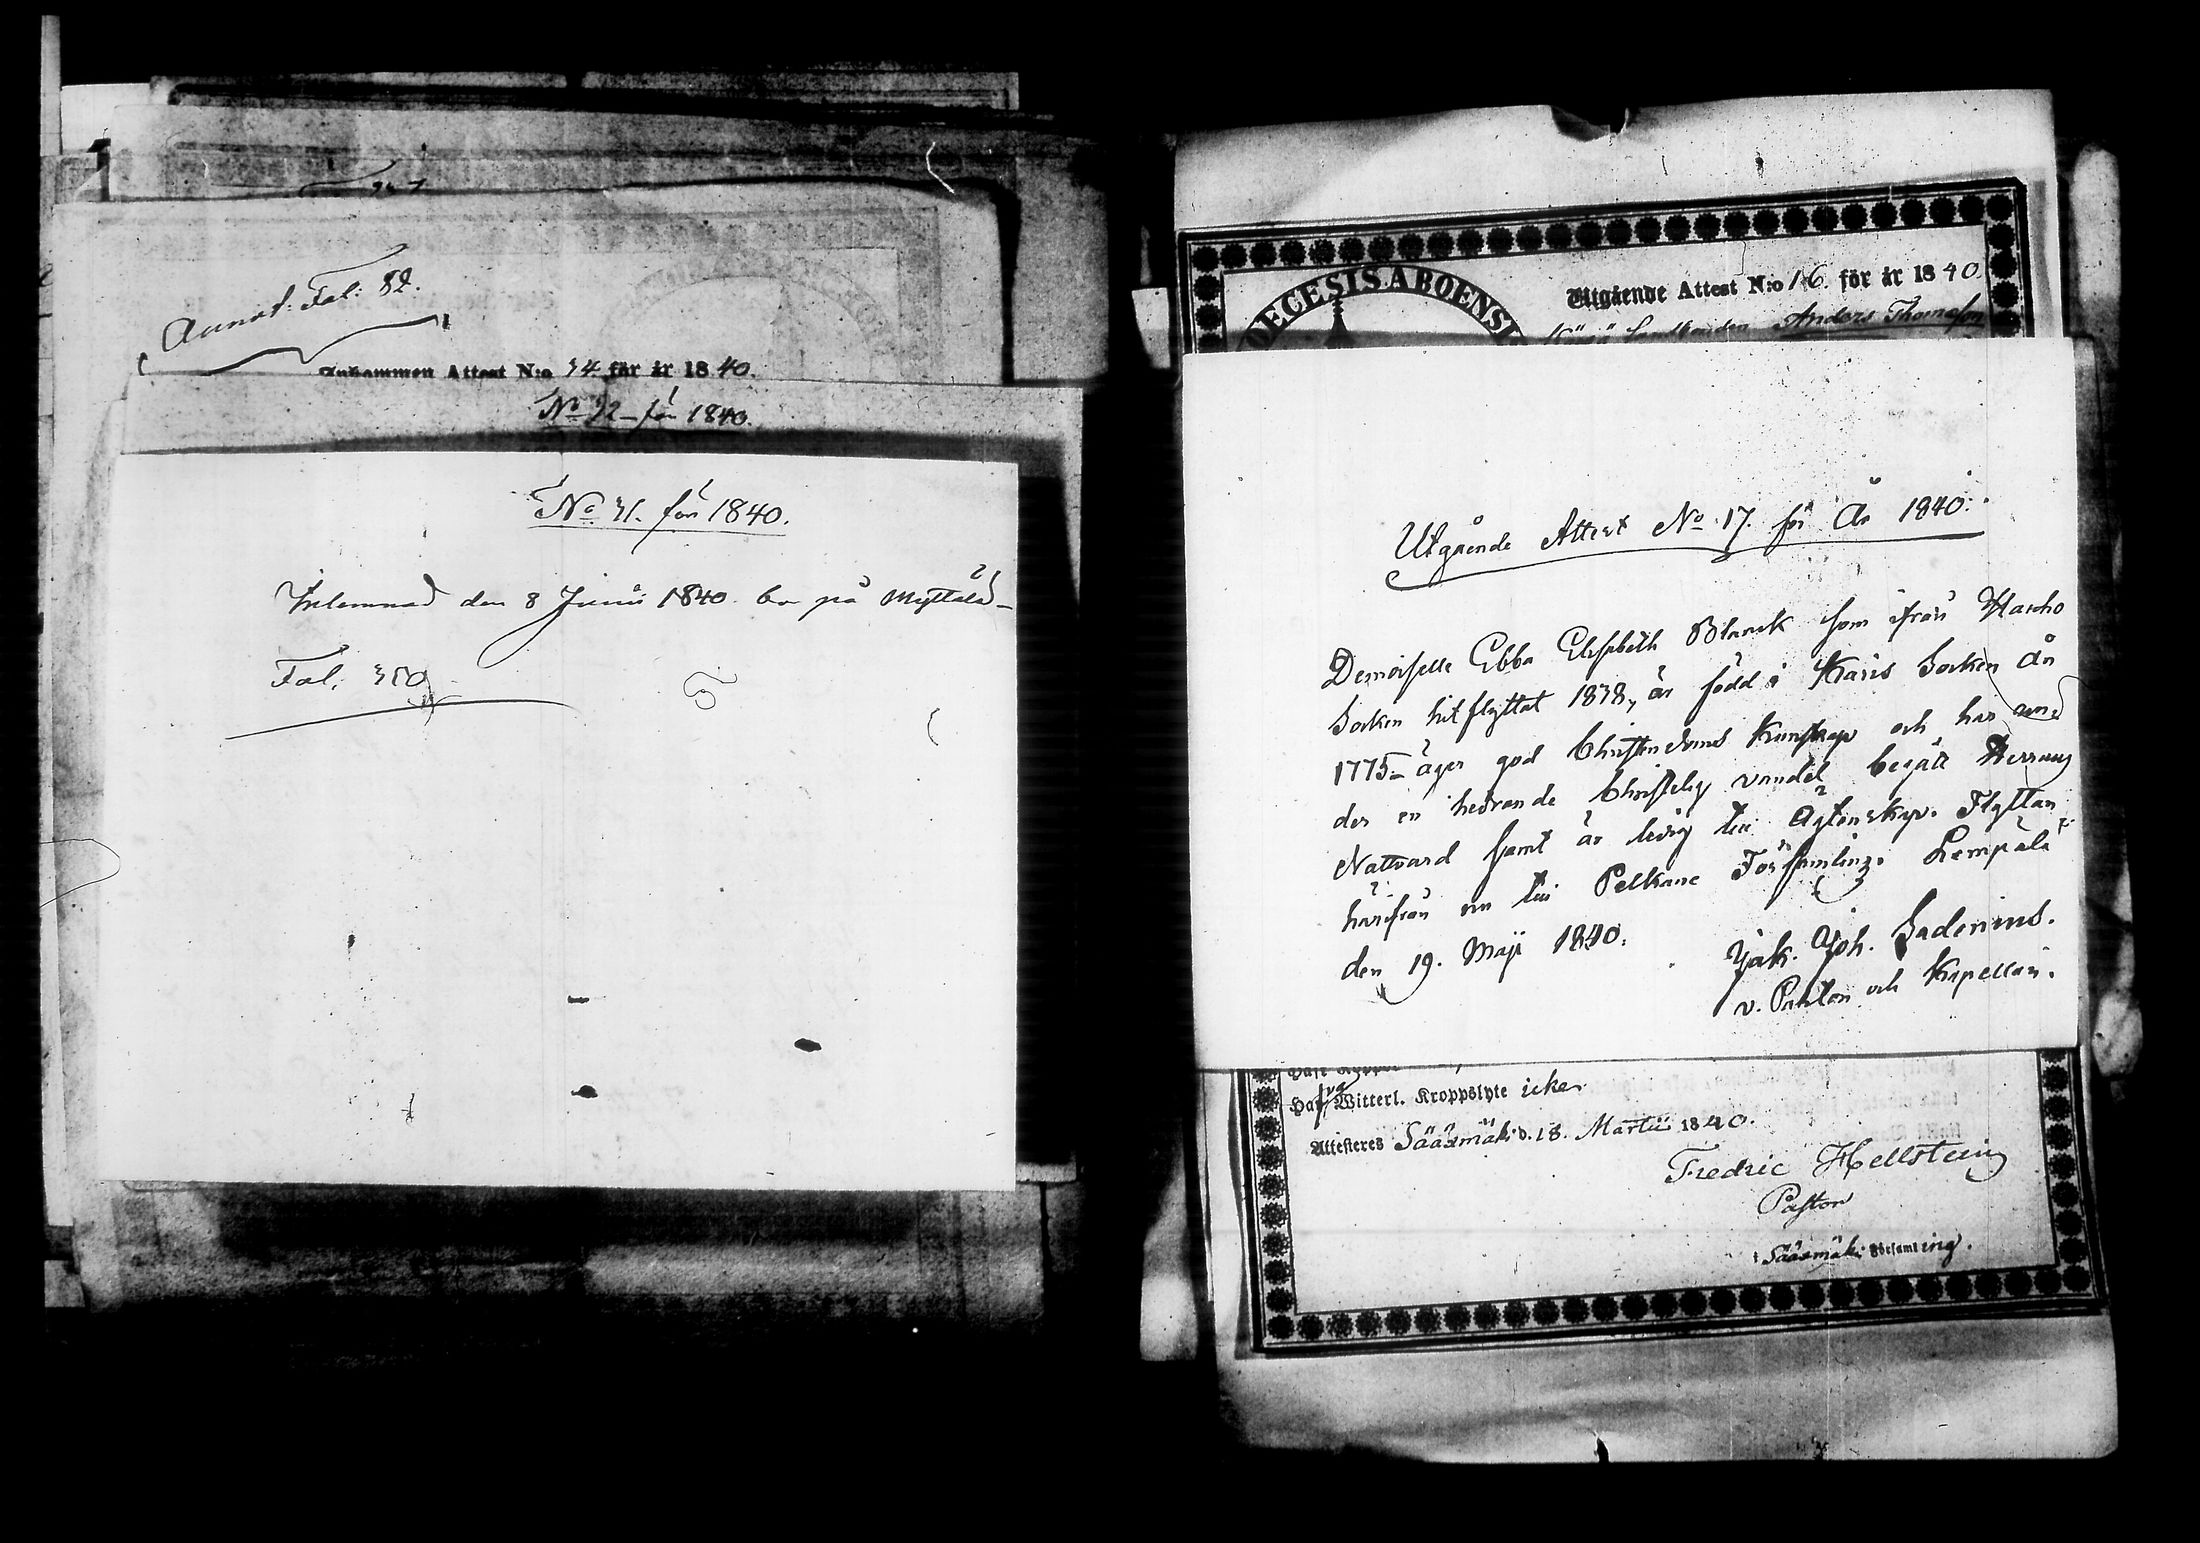 Annot. Fol: 82.
Inkommen Attest N:o 34 för år 1840.
No 32 – för 1840.
No 31. för 1840.
Inlemnad den 8 Junii 1840. bor på Myttälä –
Fol. 350
Utgående Attest N:o 16. för år 1840
DIOECESIS ABOENSI
Anders Thomasson
Utgående Attest No 17. för År 1840.
Demoiselle Ebba Elisabeth Blanck som ifrån Hauho
Socken hitflyttat 1838, är född i Karis Socken År
1775 – äger god Christendoms Kunskap och har un-
der en hedrande Christelig vandel begått Herrans
Nattvard samt är ledig till Ägtenskap. Flyttar
härifrån nu till Pelkäne Församling. Lempälä
den 19. Maji 1840.
Jak. Joh. Sadenius.
v. Pastor och Kapellan.
Haft Koppor
Haft Witterl. Kroppslyte icke.
Attesteres Sääxmäki d. 18. Martii 1840.
Fredric Hellsteing
Pastor
i Sääxmäki Församling.